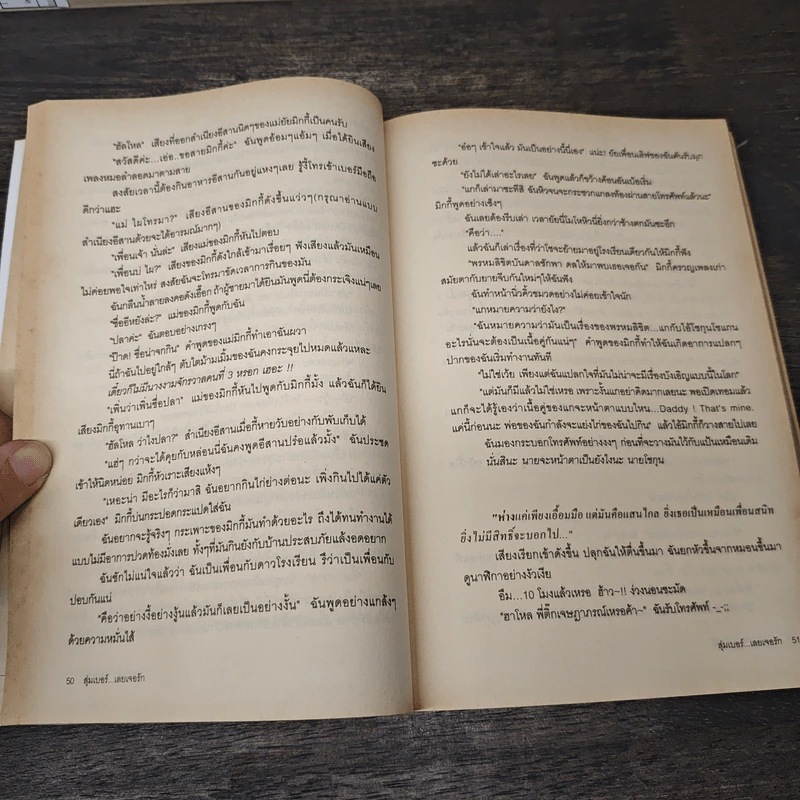 "ฮัลโหล" เสียงที่ออกสำเนียงอีสานนิดๆของแม่ยัยมิกกี้เป็นคนรับ
"สวัสดีค่ะ...เอ่อ..ขอสายมิกกี้ค่ะ" ฉันพูดอ้อมๆแอ้มๆ เมื่อได้ยินเสียง
เพลงหมอลำลอดมาตามสาย
สงสัยเวลานี้ต้องกินอาหารอีสานกันอยู่แหงๆเลย รู้งี้โทรเข้าเบอร์มือถือ
ดีกว่าแฮะ
"แม่ ไผโทรมา?" เสียงอีสานของมิกกี้ดังขึ้นแว่วๆ(กรุณาอ่านแบบ
สำเนียงอีสานด้วยจะได้อารมณ์มากๆ)
"เพื่อนเจ้า นั่นล่ะ" เสียงแม่ของมิกกี้หันไปตอบ
"เพื่อนบ่ ไผ?" เสียงของมิกกี้ดังใกล้เข้ามาเรื่อยๆ ฟังเสียงแล้วมันเหมือน
ไม่ค่อยพอใจเท่าไหร่ สงสัยฉันจะโทรมาขัดเวลาการกินของมัน
ฉันกลืนน้ำลายลงคอดังเอื้อก ถ้าผู้ชายมาได้ยินมันพูดนี่ต้องกระเจิงแน่ๆเลย
"ชื่ออีหยังล่ะ?" แม่ของมิกกี้พูดกับฉัน
"ปลาค่ะ" ฉันตอบอย่างเกรงๆ
"ป๊าด! ชื่อน่าจกกิน" คำพูดของแม่มิกกี้ทำเอาฉันผวา
นี่ถ้าฉันไปอยู่ใกล้ๆ ตับไตม้ามเมิ้มของฉันคงกระจุยไปหมดแล้วแหละ
เดี๋ยวก็ไม่มีนางงามจักรวาลคนที่ 3 หรอก เฮอะ !!
"เพิ่นว่าเพิ่นชื่อปลา" แม่ของมิกกี้หันไปพูดกับมิกกี้มั้ง แล้วฉันก็ได้ยิน
เสียงมิกกี้อุทานเบาๆ
"ฮัลโหล ว่าไงปลา?" สำเนียงอีสานเมื่อกี้หายวับอย่างกับพับเก็บได้
"แฮ่ๆ กว่าจะได้คุยกับหล่อนนี่ฉันคงพูดอีสานปร๋อแล้วมั้ง" ฉันประชด
เข้าให้นิดหน่อย มิกกี้หัวเราะเสียงแห้งๆ
"เหอะน่า มีอะไรก็ว่ามาสิ ฉันอยากกินไก่ย่างต่อนะ เพิ่งกินไปได้แค่ตัว
เดียวเอง" มิกกี้บ่นกระปอดกระแปดใส่ฉัน
ฉันอยากจะรู้จริงๆ กระเพาะของมิกกี้มันทำด้วยอะไร ถึงได้ทนทำงานได้
แบบไม่มีอาการปวดท้องมั่งเลย ทั้งๆที่มันกินยังกับบ้านประสบภัยแล้งอดอยาก
ฉันชักไม่แน่ใจแล้วว่า ฉันเป็นเพื่อนกับดาวโรงเรียน รึว่าเป็นเพื่อนกับ
ปอบกันแน่
"คือว่าอย่างงี้อย่างงู้นแล้วมันก็เลยเป็นอย่างงั้น" ฉันพูดอย่างแกล้งๆ
ด้วยความหมั่นไส้
50 สุ่มเบอร์...เลยเจอรัก
"อ๋อๆ เข้าใจแล้ว มันเป็นอย่างนี้นี่เอง" แน่ะ! ยัยเพื่อนเลิฟของฉันดันรับมุก
ซะด้วย
"ยังไม่ได้เล่าอะไรเลย" ฉันพูดแล้วก็ขว้างค้อนอันเบ้อเริ่ม
"แกก็เล่ามาซะทีสิ ฉันหิวจนจะกระชวกแกลงท้องผ่านสายโทรศัพท์แล้วนะ"
มิกกี้พูดอย่างเซ็งๆ
ฉันเลยต้องรีบเล่า เวลายัยนี่โมโหหิวนี่ยิ่งกว่าช้างตกมันซะอีก
"คือว่า...."
แล้วฉันก็เล่าเรื่องที่ว่าโซจะย้ายมาอยู่โรงเรียนเดียวกันให้มิกกี้ฟัง
"พรหมลิขิตบันดาลชักพา ดลให้มาพบเธอเจอกัน" มิกกี้ครวญเพลงเก่า
สมัยตากับยายจีบกันใหม่ๆให้ฉันฟัง
ฉันทำหน้านิ่วคิ้วขมวดอย่างไม่ค่อยเข้าใจนัก
"แกหมายความว่ายังไง?"
"ฉันหมายความว่ามันเป็นเรื่องของพรหมลิขิต...แกกับไอ้โซกุนโซแกน
อะไรนั่นจะต้องเป็นเนื้อคู่กันแน่ๆ" คำพูดของมิกกี้ทำให้ฉันเกิดอาการแปลกๆ
ปากของฉันเริ่มทำงานทันที
"ไม่ใช่เว้ย เพียงแต่ฉันแปลกใจที่มันไม่น่าจะมีเรื่องบังเอิญแบบนี้ในโลก"
"แต่มันก็มีแล้วไม่ใช่เหรอ เพราะงั้นแกอย่าคิดมากเลยนะ พอเปิดเทอมแล้ว
แกก็จะได้รู้เองว่าเนื้อคู่ของแกจะหน้าตาแบบไหน...Daddy ! That's mine.
แค่นี้ก่อนนะ พ่อของฉันกำลังจะแย่งไก่ของฉันไปกิน" แล้วไอ้มิกกี้ก็วางสายไปเลย
ฉันมองกระบอกโทรศัพท์อย่างงงๆ ก่อนที่จะวางมันไว้กับแป้นเหมือนเดิม
นั่นสินะ นายจะหน้าตาเป็นยังไงนะ นายโซกุน
"ห่างแค่เพียงเอื้อมมือ แต่มันคือแสนไกล ยิ่งเธอเป็นเหมือนเพื่อนสนิท
ยิ่งไม่มีสิทธิ์จะบอกไป..."
เสียงเรียกเข้าดังขึ้น ปลุกฉันให้ตื่นขึ้นมา ฉันยกหัวขึ้นจากหมอนขึ้นมา
ดูนาฬิกาอย่างงัวเงีย
อืม...10 โมงแล้วเหรอ ฮ้าว~!! ง่วงนอนชะมัด
"ฮาโหล พี่ติ๊กเจษฎาภรณ์เหรอค้า~" ฉันรับโทรศัพท์ -_-;;
สุ่มเบอร์...เลยเจอรัก 51